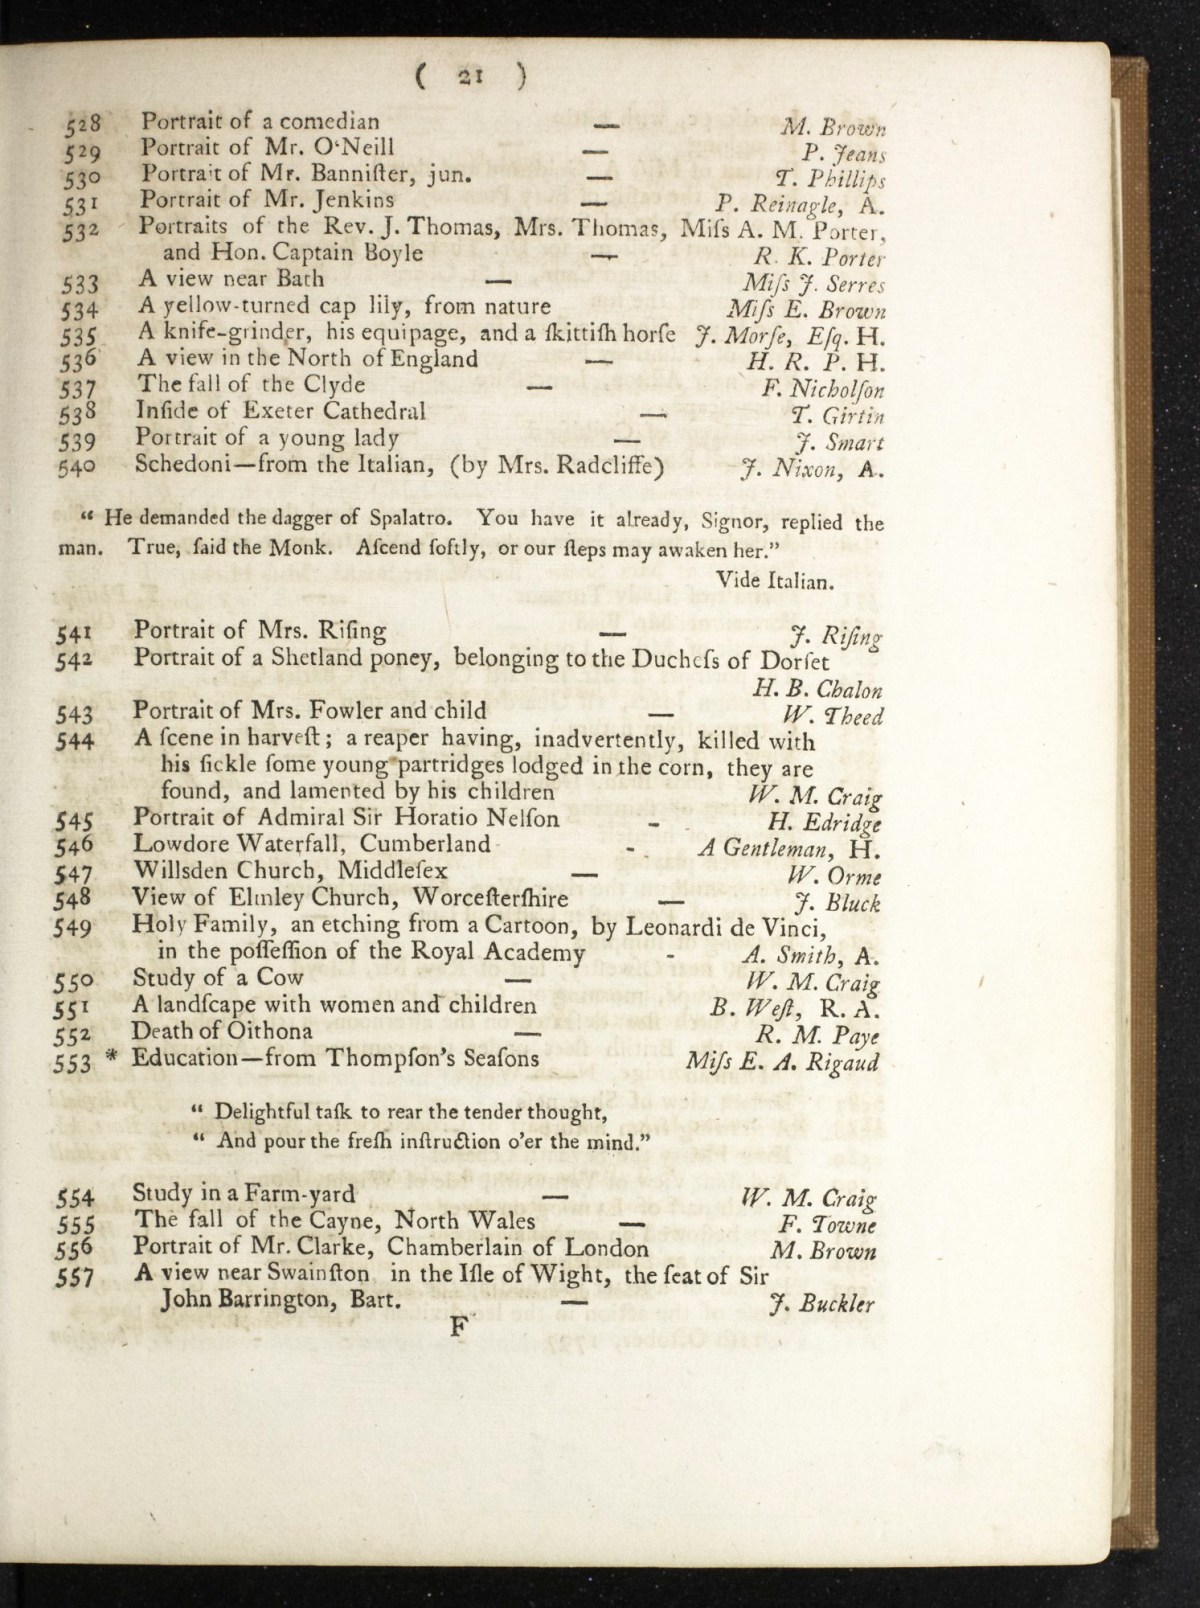 ( 21 )
528 Portrait of a comedian — M. Brown
529 Portrait of Mr. O'Neill — P. Jeans
530 Portrait of Mr. Banniſter, jun. — T. Phillips
531 Portrait of Mr. Jenkins — P. Reinagle, A.
532 Portraits of the Rev. J. Thomas, Mrs. Thomas, Miſs A. M. Porter,
and Hon. Captain Boyle — R. K. Porter
533 A view near Bath — Miſs J. Serres
534 A yellow-turned cap lily, from nature Miſs E. Brown
535 A knife-grinder, his equipage, and a ſkittiſh horſe J. Morſe, Eſq. H.
536 A view in the North of England — H. R. P. H.
537 The fall of the Clyde — F. Nicholſon
538 Inſide of Exeter Cathedral — T. Girtin
539 Portrait of a young lady — J. Smart
540 Schedoni—from the Italian, (by Mrs. Radcliffe) J. Nixon, A.
“ He demanded the dagger of Spalatro. You have it already, Signor, replied the
man. True, ſaid the Monk. Aſcend ſoftly, or our ſteps may awaken her.”
Vide Italian.
541 Portrait of Mrs. Riſing — J. Riſing
542 Portrait of a Shetland poney, belonging to the Ducheſs of Dorſet
H. B. Chalon
543 Portrait of Mrs. Fowler and child — W. Theed
544 A ſcene in harveſt; a reaper having, inadvertently, killed with
his ſickle ſome young partridges lodged in the corn, they are
found, and lamented by his children W. M. Craig
545 Portrait of Admiral Sir Horatio Nelſon - H. Edridge
546 Lowdore Waterfall, Cumberland - A Gentleman, H.
547 Willsden Church, Middleſex — W. Orme
548 View of Elmley Church, Worceſterſhire — J. Bluck
549 Holy Family, an etching from a Cartoon, by Leonardi de Vinci,
in the poſſeſſion of the Royal Academy - A. Smith, A.
550 Study of a Cow — W. M. Craig
551 A landſcape with women and children B. Weſt, R. A.
552 Death of Oithona — R. M. Paye
553 * Education—from Thompſon's Seaſons Miſs E. A. Rigaud
“ Delightful taſk to rear the tender thought,
“ And pour the freſh inſtruction o'er the mind.”
554 Study in a Farm-yard — W. M. Craig
555 The fall of the Cayne, North Wales — F. Towne
556 Portrait of Mr. Clarke, Chamberlain of London M. Brown
557 A view near Swainſton in the Iſle of Wight, the ſeat of Sir
John Barrington, Bart. — J. Buckler
F